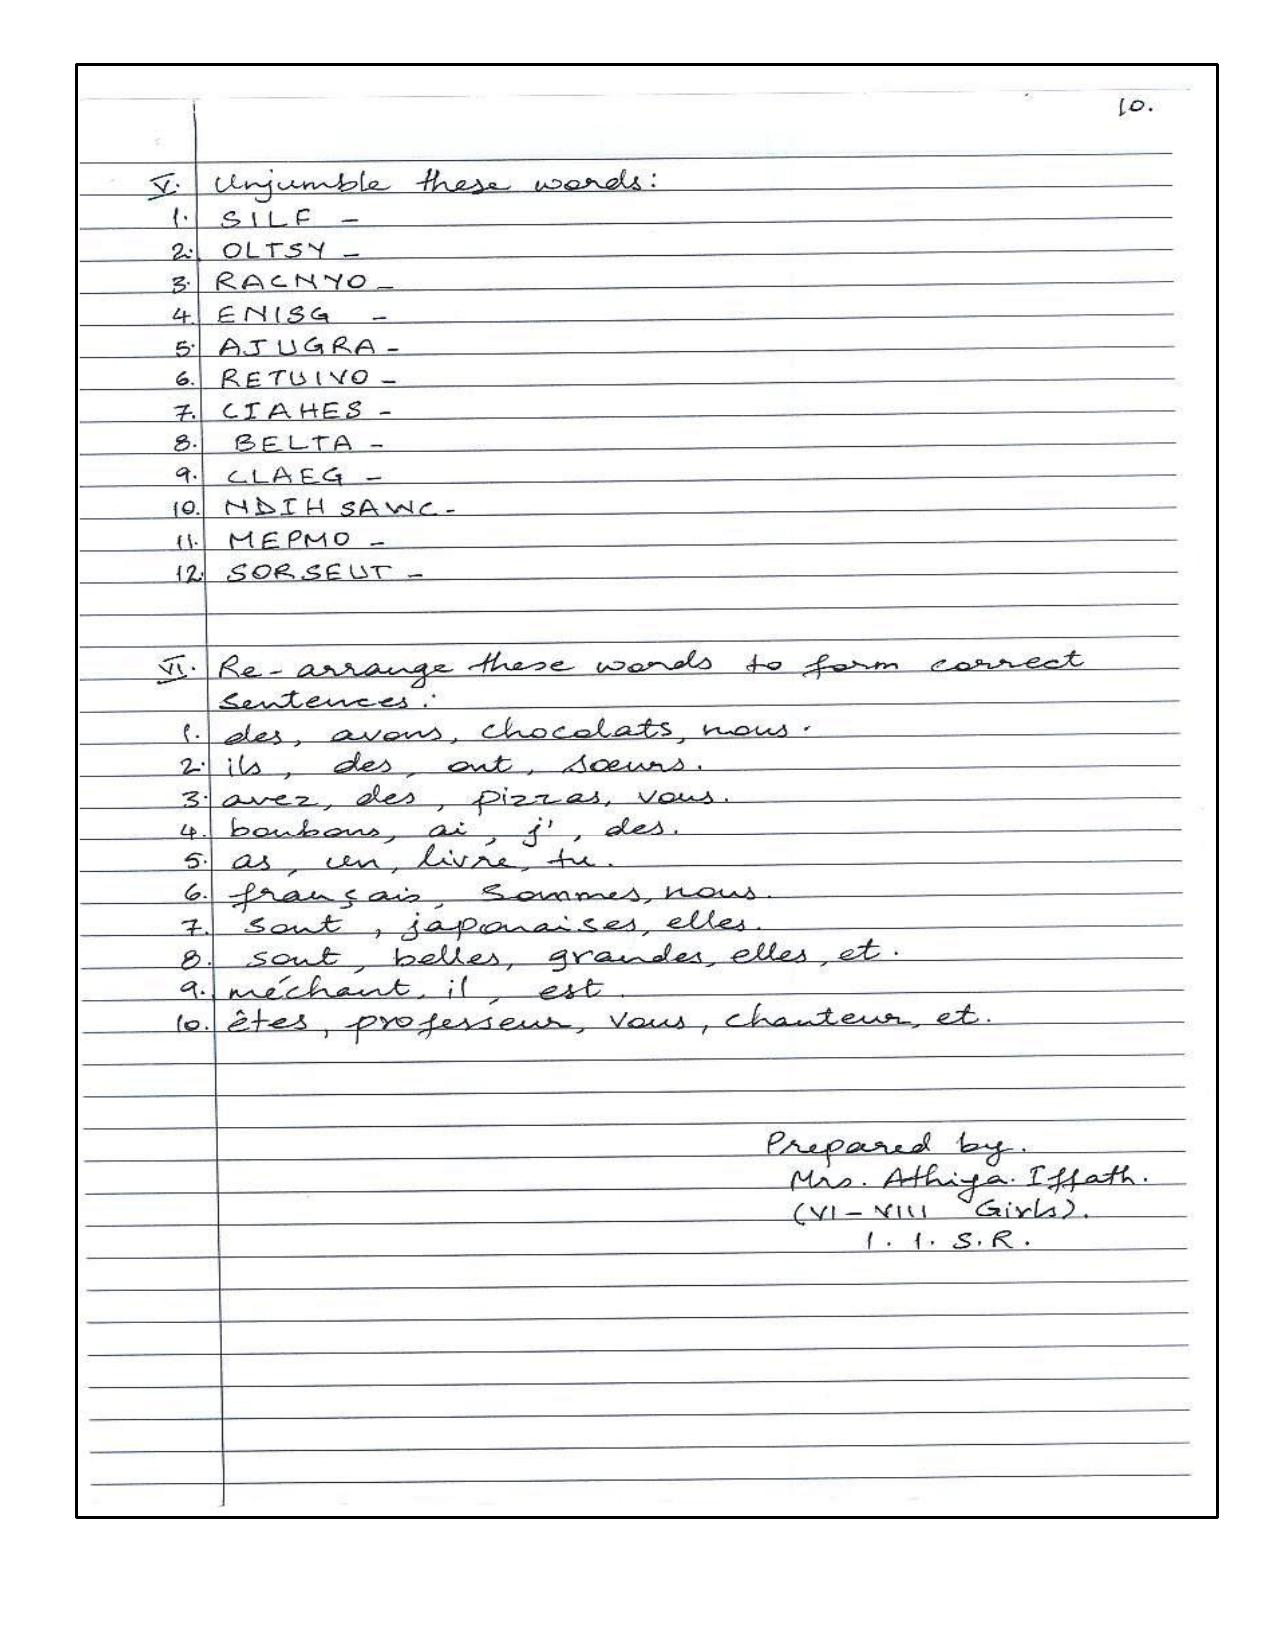 10.
V. Unjumble these words:
1. SILF -
2. OLTSY -
3. RACNYO -
4. ENISG -
5. AJUGRA -
6. RETUIVO -
7. CIAHES -
8. BELTA -
9. CLAEG -
10. NDIHSAWC -
11. MEPMO -
12. SORSEUT -
VI. Re-arrange these words to form correct
sentences:
1. des, avons, chocolats, nous.
2. ils, des, ont, soeurs.
3. avez, des, pizzas, vous.
4. bonbons, ai, j', des.
5. as, un, livre, tu.
6. français, sommes, nous.
7. sont, japonaises, elles.
8. sont, belles, grandes, elles, et.
9. méchant, il, est.
10. êtes, professeur, vous, chanteur, et.
Prepared by.
Mrs. Athiya. Iffath.
(VI - VIII Girls).
I. I. S. R.